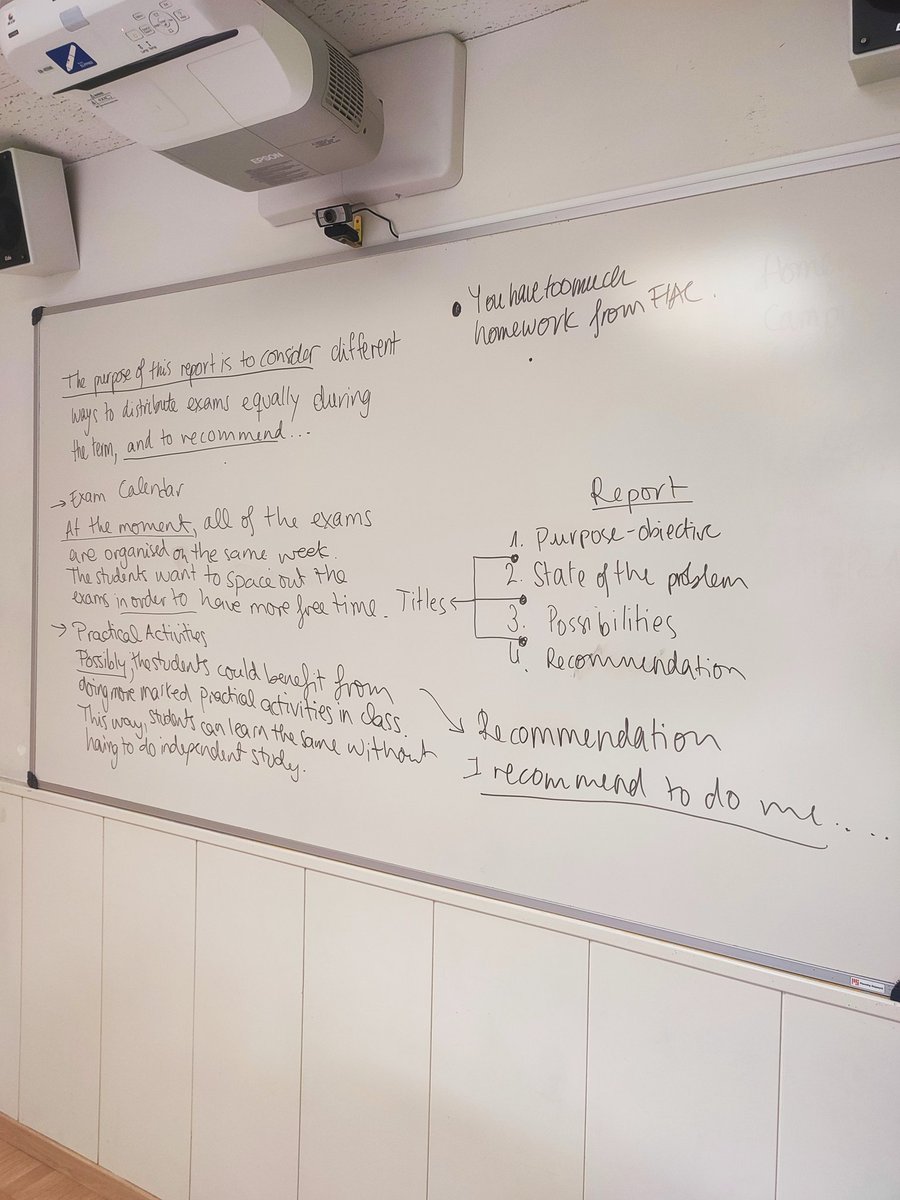 EPSON
• You have too much
homework from FIAC.
The purpose of this report is to consider different
ways to distribute exams equally during
the term, and to recommend...
→ Exam Calendar
At the moment, all of the exams
are organised on the same week.
The students want to space out the
exams in order to have more free time.
→ Practical Activities
Possibly, the students could benefit from
doing more marked practical activities in class.
This way, students can learn the same without
haing to do independent study.
Titles
Report
1. Purpose-objective
2. State of the problem
3. Possibilities
4. Recommendation
Recommendation
I recommend to do me.....